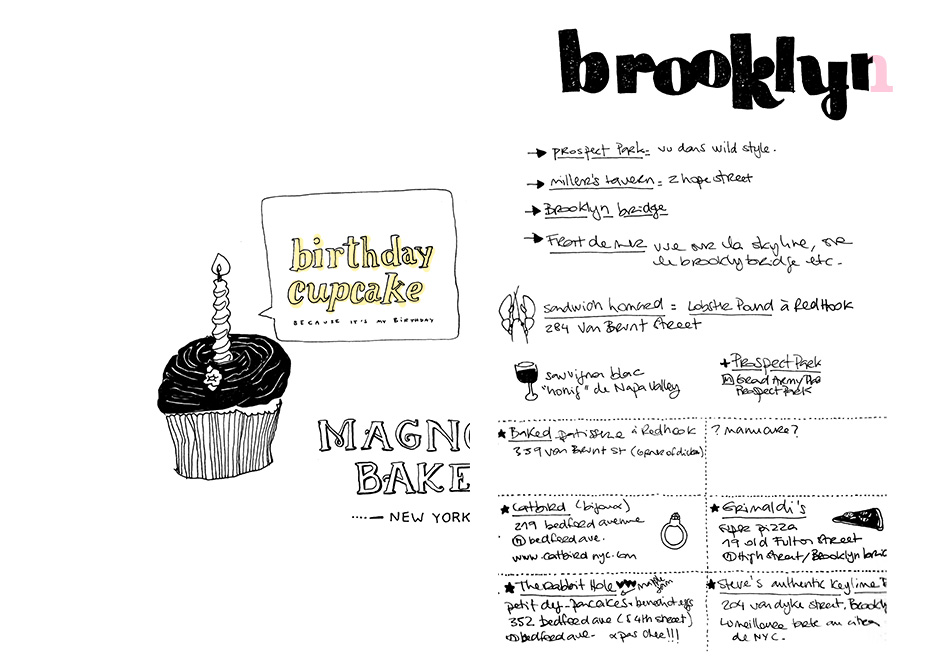 birthday
cupcake
BECAUSE IT'S MY BIRTHDAY
MAGNO
BAKE
NEW YORK
brooklyn
prospect Park = vu dans wild style.
miller's tavern = 2 hope street
Brooklyn bridge
Front de mer vue sur la skyline, sur
le brooklyn bridge etc.
sandwich homard = Lobster Pound à RedHook
284 Van Brunt Street
sauvignon blanc
"honig" de Napa Valley
+ Prospect Park
Grand Army
Prospect Park
Baked patisserie à RedHook
359 van Brunt St
? manucure?
Catbird (bijoux)
219 bedford avenue
bedford ave.
www.catbirdnyc.com
Grimaldi's
super pizza
19 old Fulton Street
High Street/Brooklyn
The Rabbit Hole
petit dej - pancakes + benedict eggs
352 bedford ave (S 4th street)
bedford ave - pas cher!!!
Steve's authentic Keylime
204 van dyke street, Brookly
meilleure tarte au citron
de NYC.